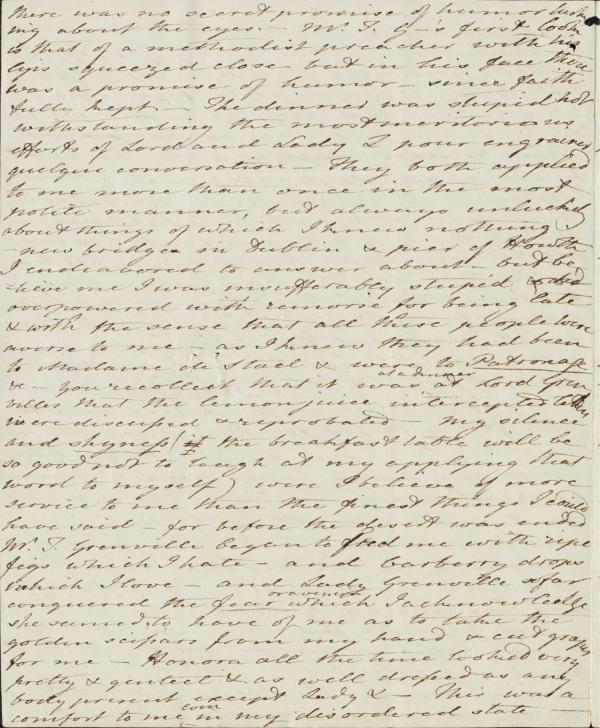 there was no secret promise of humor lurk
ing about the eyes. — Mr. T. G—'s first look
is that of a methodist preacher with his
lips squeezed close but in his face there
was a promise of humor — since faith
fully kept. — The dinner was stupid not
withstanding the most meritorious
efforts of Lord and Lady L pour engrainer
quelque conversation — They both applied
to me more than once in the most
polite manner, but always unluckily
about things of which I knew nothing
new bridge in Dublin & pier of Howth
I endeavored to answer about — but be
=lieve me I was insufferably stupid &
overpowered with remorse for being late
& with the sense that all these people were
averse to me — as I knew they had been
to Madame de Stael & were to Patronage
&c — you recollect that it was at a dinner at Lord Gren
villes that the lemonjuice intercepted letters
were discussed & reprobated — my silence
and shyness (if the breakfast table will be
so good not to laugh at my applying that
word to myself) were I believe of more
service to me than the finest things I could
have said — for before the desert was ended
Mr. T. Grenville began to feed me with ripe
figs which I hate — and barberry drops
which I love — and Lady Grenville so far
conquered the fear or aversion which I acknowledge
she seemed to have of me as to take the
golden scissars from my hand & cut grapes
for me — Honora all the time looked very
pretty & genteel & as well dressed as any
body present except Lady L — This was a
comfort to me even in my disordered state —